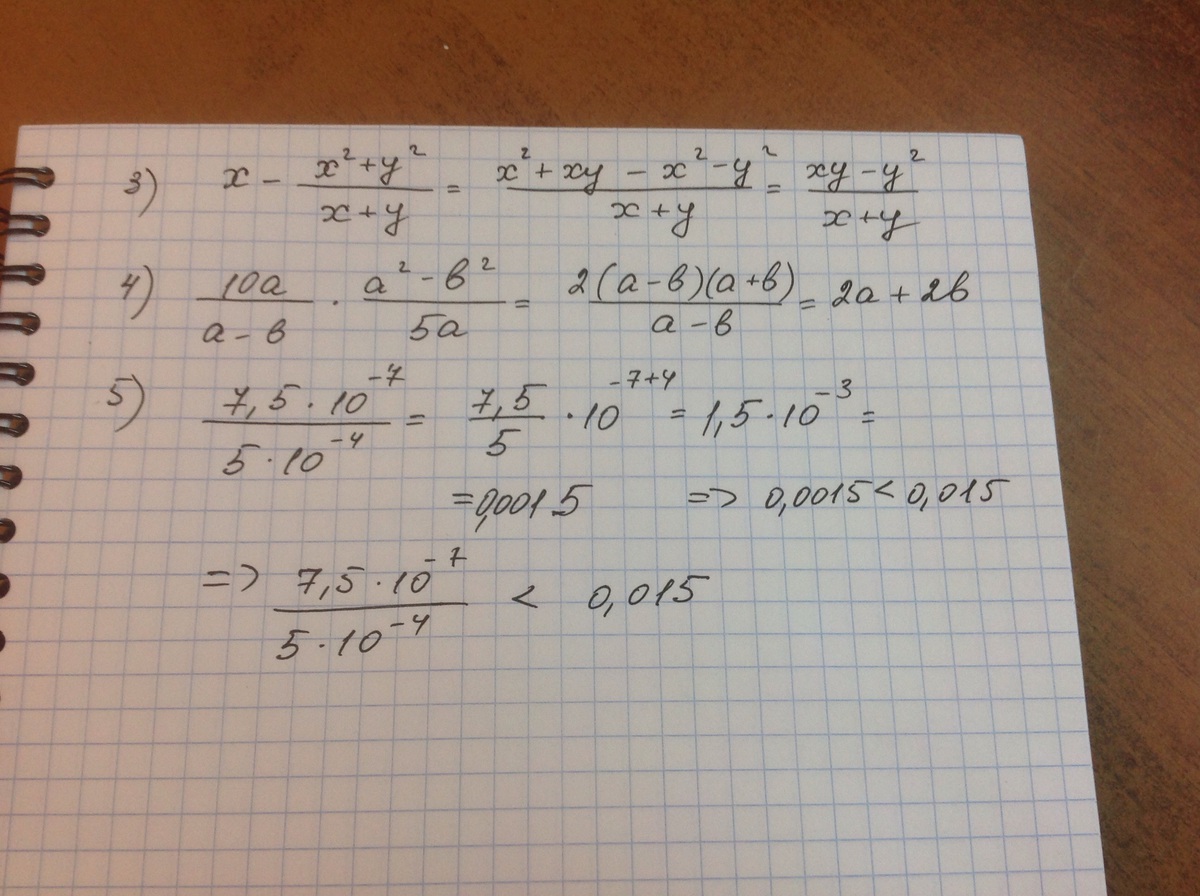 3) x - (x²+y²)/(x+y) = (x²+xy - x²-y²)/(x+y) = (xy-y²)/(x+y)
4) 10a/(a-в) · (a²-в²)/5a = 2(a-в)(a+в)/(a-в) = 2a+2в
5) (7,5·10⁻⁷)/(5·10⁻⁴) = 7,5/5 · 10⁻⁷⁺⁴ = 1,5·10⁻³ =
= 0,0015 => 0,0015 < 0,015
=> (7,5·10⁻⁷)/(5·10⁻⁴) < 0,015